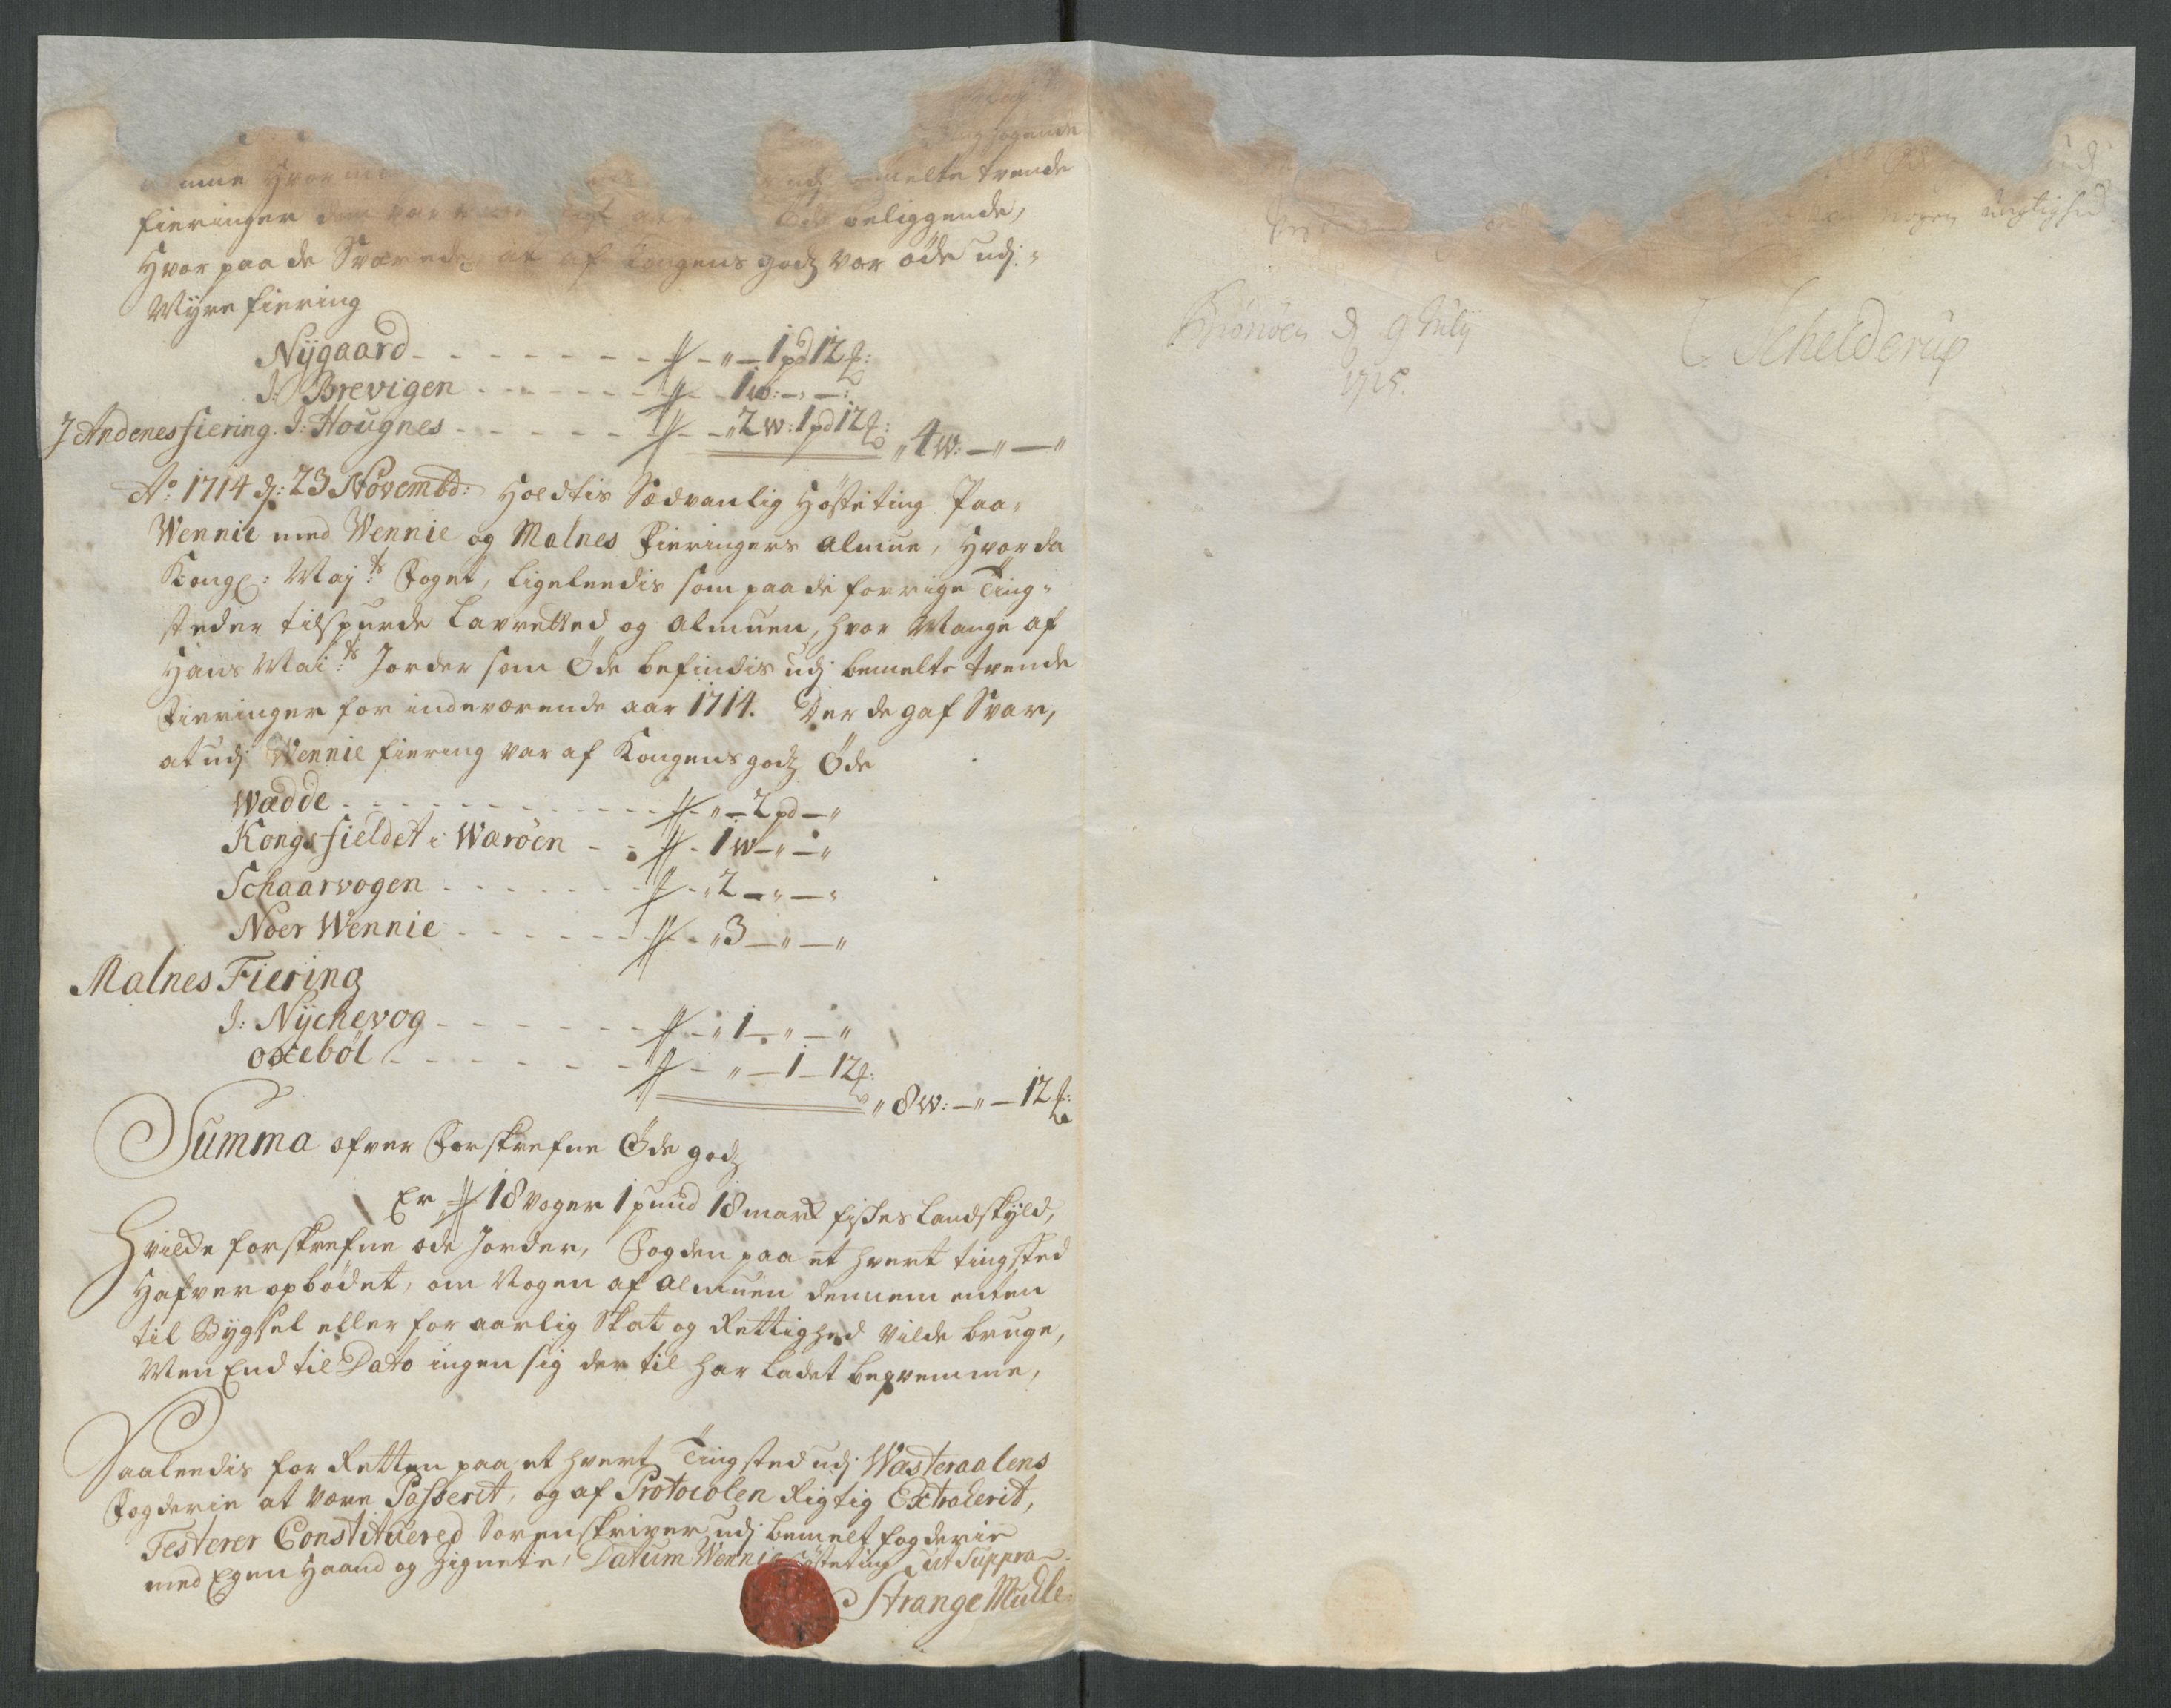 melte trende
fieringer beliggende,
Hvor paa de Svarede, at af Kongens godz var øde udj
Myre fiering
Nÿgaard - - - - - - - „ — 1 pd 12 ℔:
J: Brevigen - - - - - - 1 w: — „ —
J Andenes fiering. J: Hougnes - - - - - - „ 2 w: 1 pd 12 ℔: „ 4 w: — „ — „
Ao: 1714 d: 23 Novembr: Holdtis Sædvanlig Høsteting Paa
Wennie med Wennie og Malnes Fieringers Almue, Hvor da
Kongl: Maj:ts Foget, ligeleedis som paa de forrige Ting-
steder tilspurde Lavretted og Almuen, hvor Mange af
Hans Mai:ts Jorder som Øde befindis udj bemelte trende
Fieringer for indeværende aar 1714. Der de gaf Svar,
at udj Wennie fiering var af Kongens godz Øde
Wædde - - - - - - - - - - - „ — 2 pd — „
Kongsfieldet i Warøen - - - 1 w — „ — „
Schaarvogen - - - - - - - „ 2 — „ — „
Noer Wennie - - - - - - - „ 3 — „ — „
Malnes Fiering
J: Nÿchevog - - - - - - - „ 1 — „ — „
oxebøl - - - - - - - „ — 1 — 12 ℔:
„ 8 w: — „ — 12 ℔:
Summa ofver Forskrefne Øde godz
Er 18 Voger 1 pund 18 mark fiskes Landskÿld,
Hvilke forskrefne øde Jorder, Fogden paa et hvert tingsted
Hafver opbødet, om Nogen af Almuen dennem enten
til Bÿgsel eller for aarlig Skat og Rettighed vilde bruge,
Men End til Dato ingen sig der til har ladet beqvemme,
Saaleedis for Retten paa et hvert Tingsted udj Wasteraalens
Fogderie at være Passerit, og af Protocolen Rigtig Extraherit,
Testerer Constituered Sorenskriver udj bemelt fogderie
med Egen Haand og Zignete, Datum Wennie Høsteting ut Suppra.
Strange Muhle
Nogen
Brönöen d 9 Julÿ
1715.
C. Schelderup